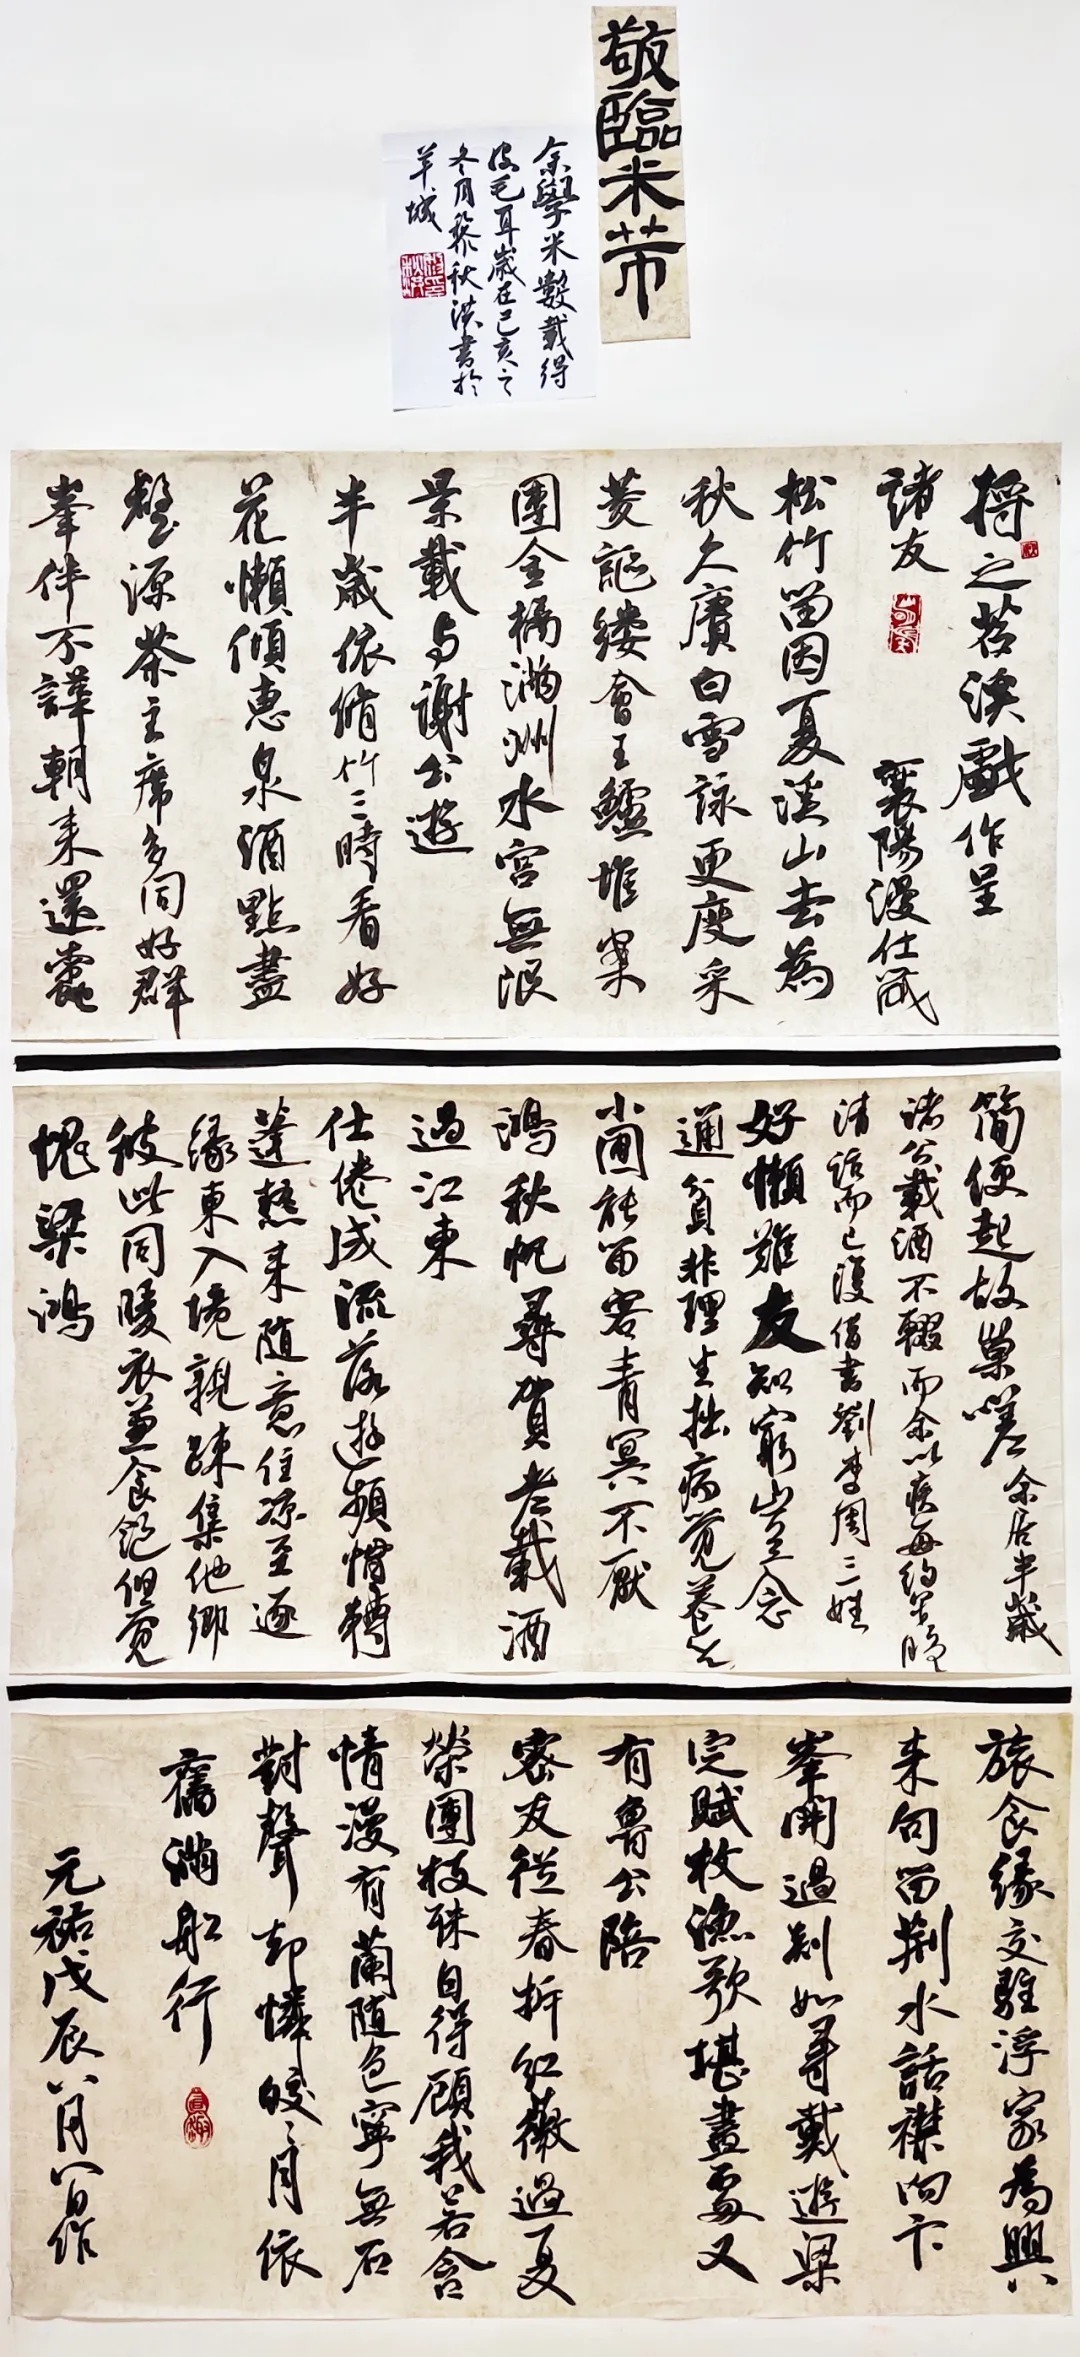 敬臨米芾
余學米數載得
皮毛耳歲在己亥之
冬月黎秋洪書於
羊城
将之苕溪戲作呈
諸友
襄陽漫仕黻
松竹留因夏溪山去為
秋久賡白雪詠更度采
菱謳縷會玉鱸堆案
團金橘滿洲水宮無限
景載与謝公遊
半歲依脩竹三時看好
花懶傾惠泉酒點盡
壑源茶主席多同好群
峯伴不譁朝来還蠹
簡便起故巢嗟余居半歲
諸公載酒不輟而余以疾每約置膳
清話而已復借書劉李周三姓
好懶難友知窮豈念
通貧非理生拙病覺養心
功圃能留客青冥不厭
鴻秋帆尋賀老載酒
過江東
仕倦成流落遊頻慣轉
蓬熱来随意住凉至逐
緣東入境親踈集他鄉
彼此同暖衣兼食飽但覺
愧梁鴻
旅食緣交駐浮家為興
来句留荆水話襟向卞
峯開過剡如尋戴遊梁
定賦枚漁歌堪畫處又
有魯公陪
密友從春拆紅薇過夏
榮團枝殊自得顧我若含
情漫有蘭随色寧無石
對聲却憐皎々月依
舊滿船行
元祐戊辰八月八日作